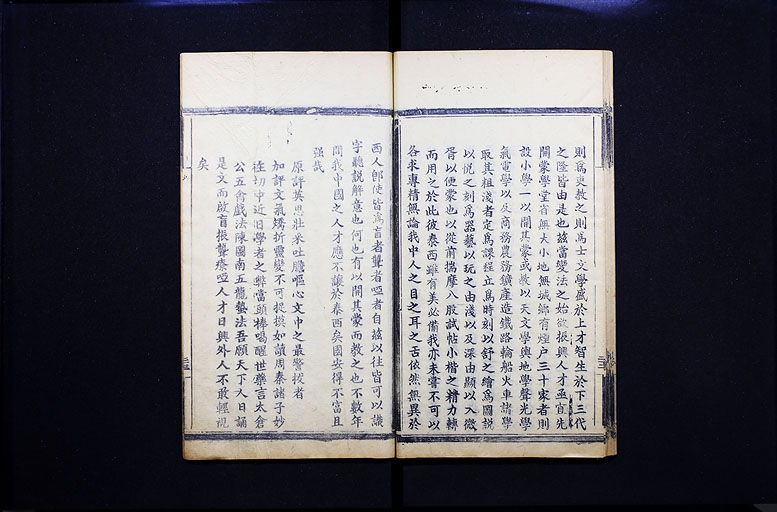 則爲吏教之則爲士文學盛於上才智生於下三代
之隆皆由是也茲當變法之始欲振興人才亟宜先
開蒙學堂音無大小地無城鄉有煙戶三十家者則
設小學一以開其蒙或教以天文學輿地學聲光學
氣電學以及商務農務鑛產造鐵路輪船火車諸學
取其粗淺者定爲課程立爲時刻以舒之繪爲圖說
以悅之刻爲器藝以玩之由淺以及深由顯以入微
胥以便蒙也以從前揣摩八股試帖小楷之精力轉
而用之於此彼泰西雖有美必備我亦未嘗不可以
各求專精無論我中人之目之耳之舌依然無異於
西人卽使皆爲盲者聾者啞者自茲以往皆可以識
字聽說解意也何也有以開其蒙而教之也不數年
間我中國之人才應不讓於泰西矣國安得不富且
强哉
原評英思壯采吐膽嘔心文中之最警拔者
加評文氣矯折靈變不可捉摸如讀周秦諸子妙
在切中近旧學者之弊當頭棒喝醒世藥言太倉
公五禽戲法陳圖南五龍蟄法吾願天下人日誦
是文而啟盲振聾療啞人才日興外人不敢輕視
矣